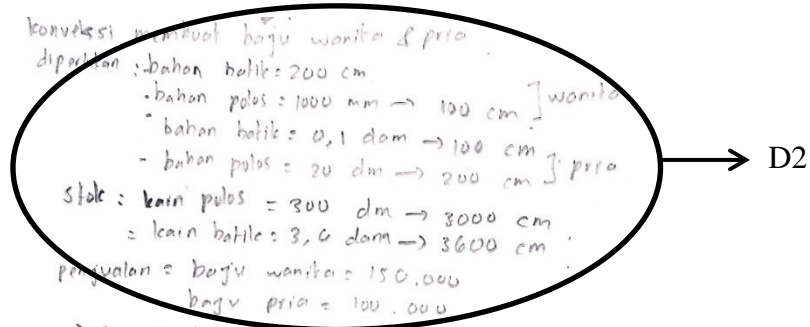 konveksi membuat baju wanita & pria
diperlukan : bahan batik = 200 cm
- bahan polos = 1000 mm → 100 cm ] wanita
- bahan batik = 0,1 dam → 100 cm
- bahan polos = 20 dm → 200 cm ] pria
Stok : kain polos = 300 dm → 3000 cm
= kain batik = 3,6 dam → 3600 cm
penjualan = baju wanita = 150.000
baju pria = 100.000
D2